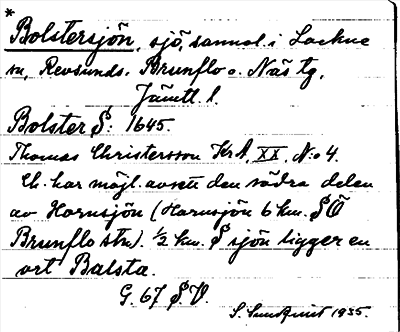 *
Bolstersjön, sjö, sannol. i Lockne
sn, Revsunds, Brunflo o. Näs tg,
Jämtl. l.
Bolster S: 1645.
Thomas Christersson KrA, XX, N:o 4.
Ch. har möjl. avsett den södra delen
av Hornsjön (Hornsjön 6 km. SÖ
Brunflo stn). ½ km. S sjön ligger en
ort Balsta.
G. 67 SV.
S. Sundquist 1935.